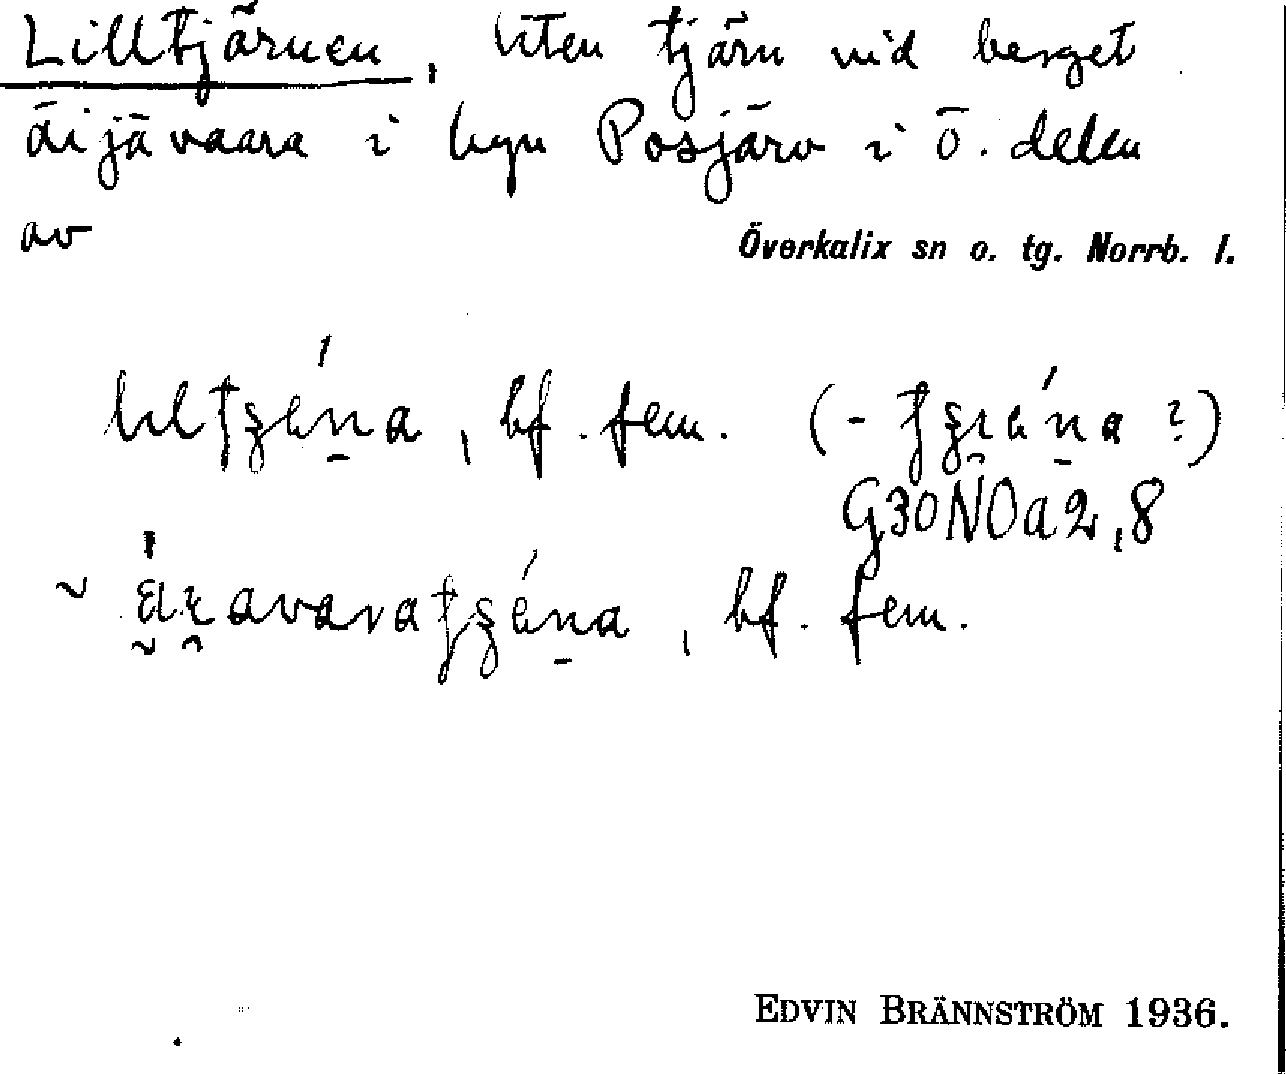 Lilltjärnen, liten tjärn vid berget
äijävaara i byn Posjärv i ö. delen
av Överkalix sn o. tg. Norrb. l.
, bf. fem. (-
G30NOa2,8
~ , bf. fem.
EDVIN BRÄNNSTRÖM 1936.